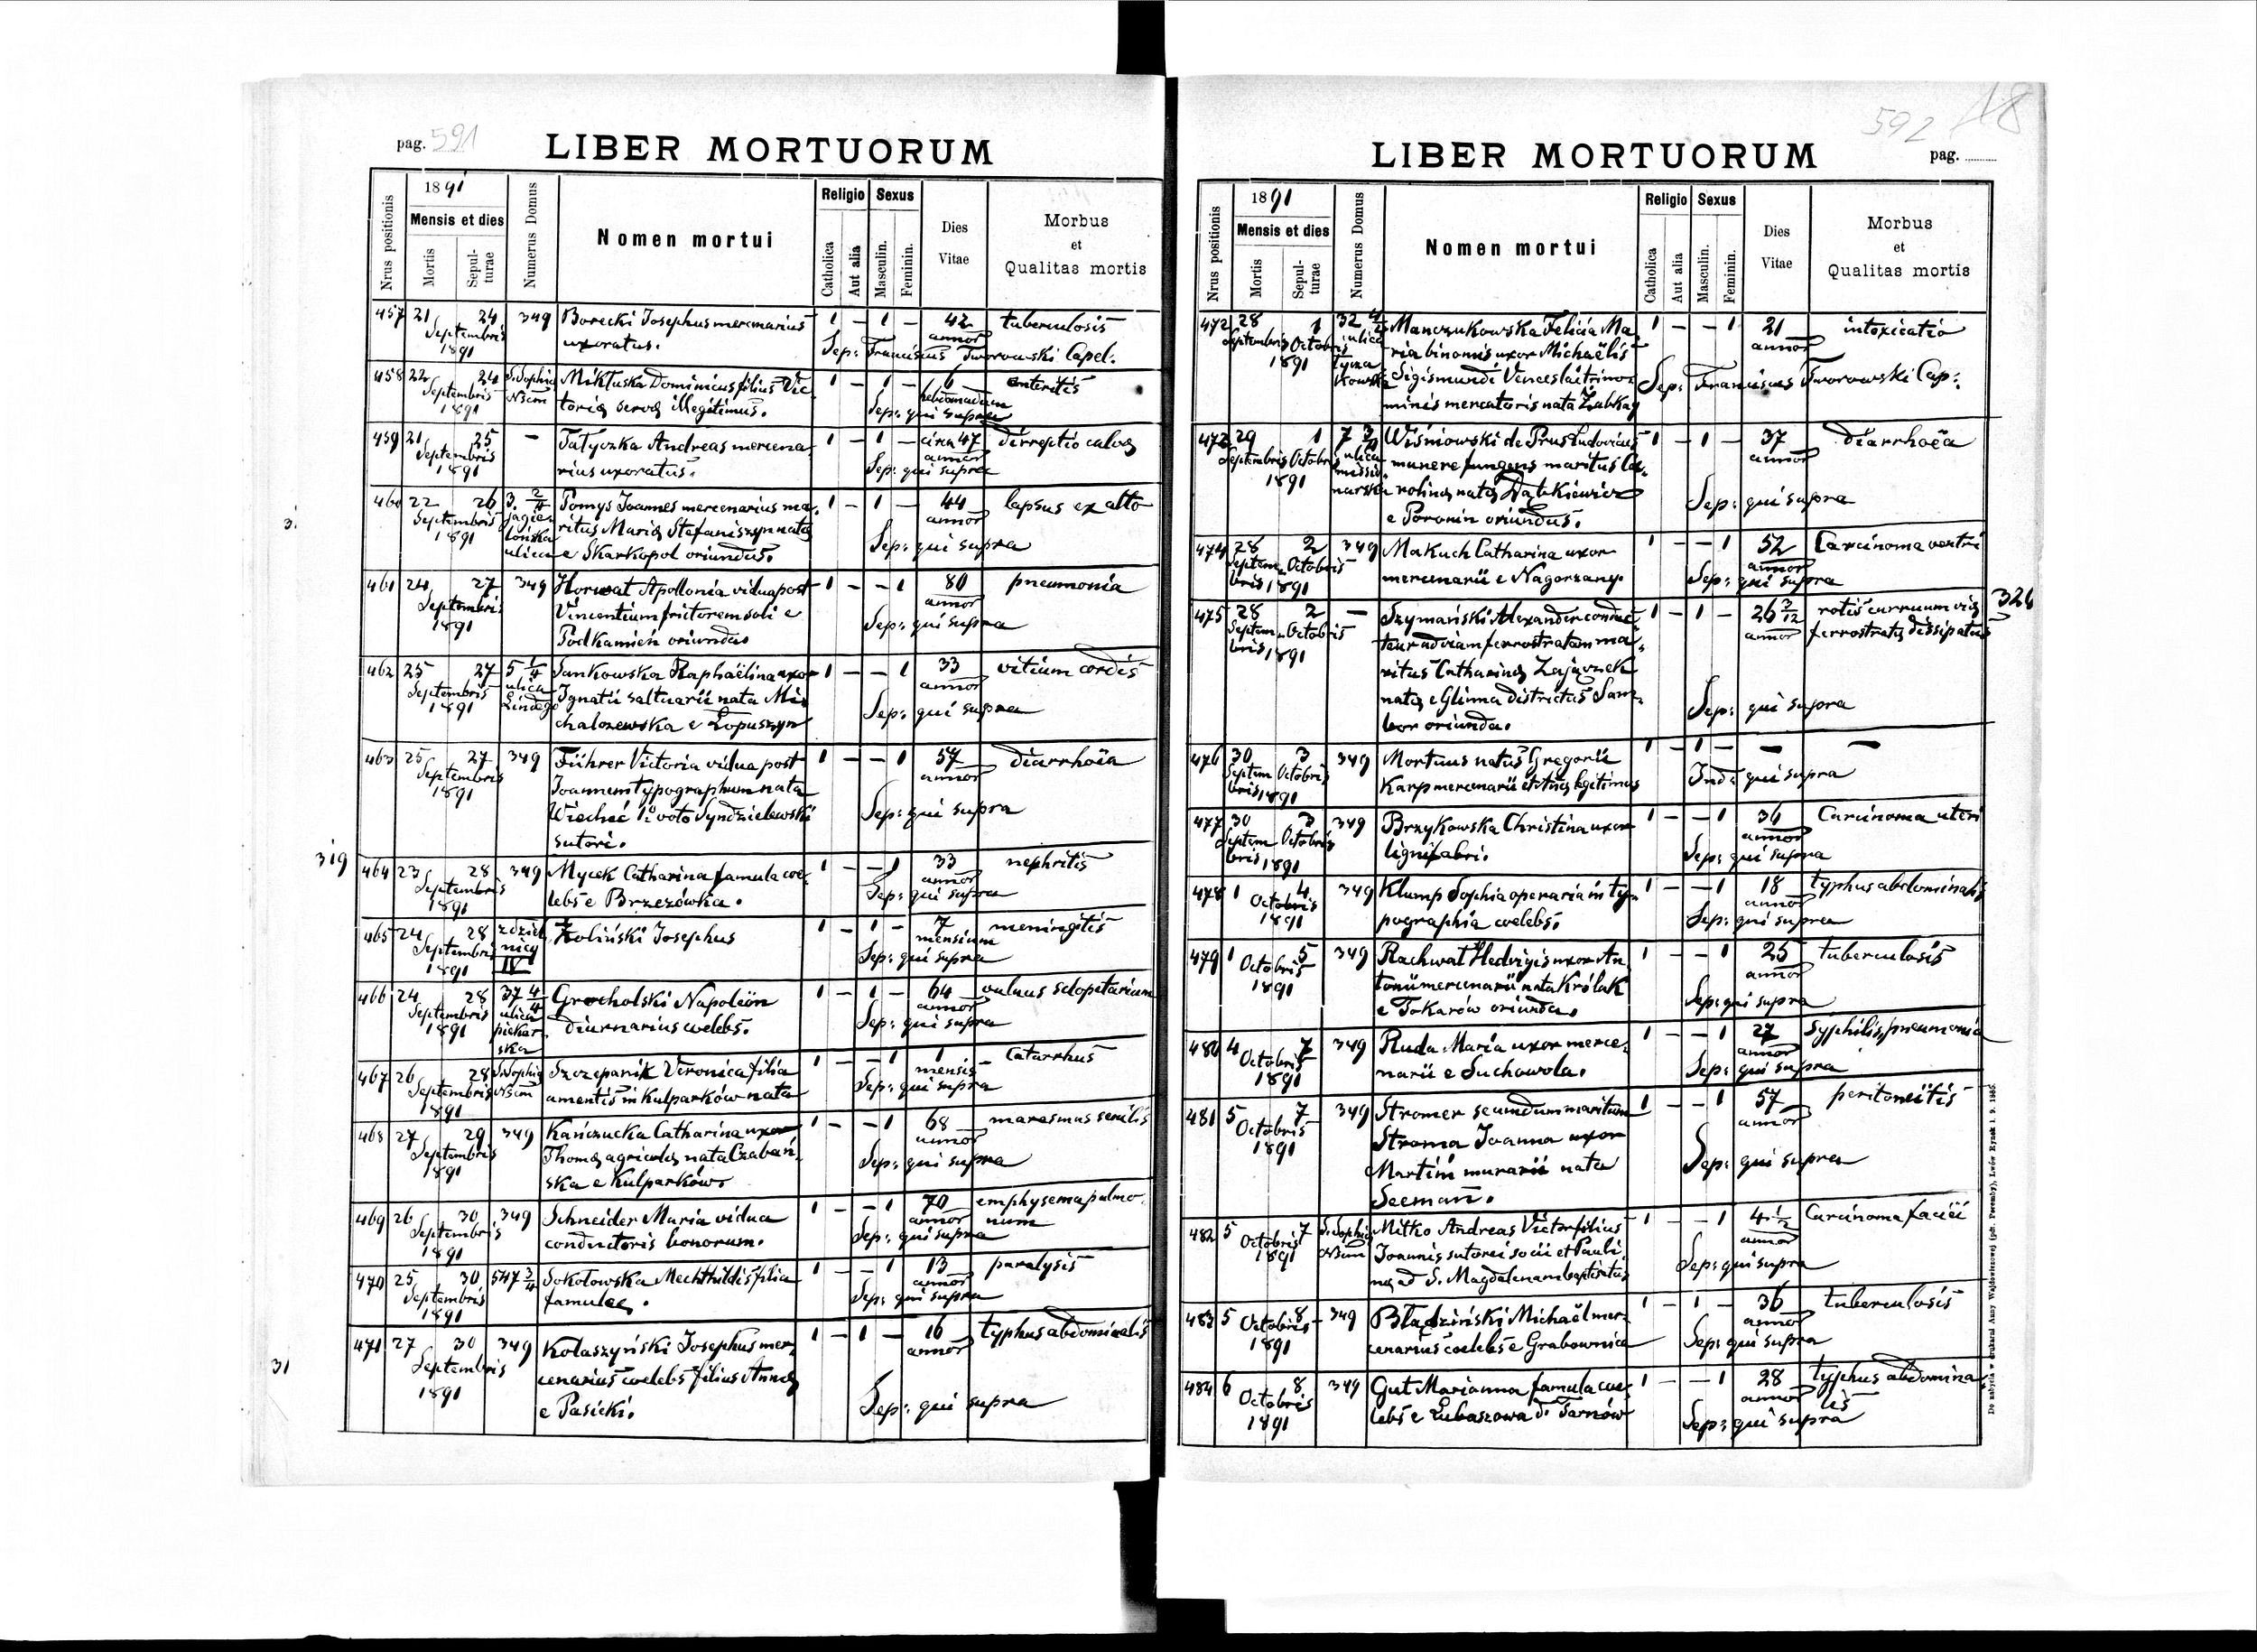 pag. 591
LIBER MORTUORUM
1891
Nrus positionis
Mensis et dies
Mortis
Sepul-
turae
Numerus Domus
Nomen mortui
Religio
Catholica
Aut alia
Sexus
Masculin.
Feminin.
Dies
Vitae
Morbus
et
Qualitas mortis
457 21 24 349 Borecki Josephus mercenarius 1 - 1 - 42 tuberculosis
Septembris uxoratus. annor
1891 Sep: Franciscus Tworowski Capel.
458 22 24 S. Sophia Miktuska Dominicus filius Vic 1 - 1 - 6 enteritis
Septembris N3em toriæ servæ illegitimus. hebdomadum
1891 Sep: qui supra
459 21 25 - Tatyczka Andreas mercena 1 - 1 - circa 47 dirreptio calvæ
Septembris rius uxoratus. annor
1891 Sep: qui supra
460 22 26 3. 2/4 Pomys Joannes mercenarius ma, 1 - 1 - 44 lapsus ex alto
Septembris Jagiel ritus Mariæ Stefaniszyn natæ annor
1891 lońska ulica e Skarkopol oriundus. Sep: qui supra
461 24 27 349 Horwat Apollonia vidua post 1 - - 1 80 pneumonia
Septembris Vincentium frictorem soli e annor
1891 Podkamień oriunda Sep: qui supra
462 25 27 5 1/4 Jankowska Raphaëlina uxor 1 - - 1 33 vitium cordis
Septembris ulica Ignatii saltuarii nata Mi annor
1891 Lindego chalozewska e Łopuszyn Sep: qui supra
463 25 27 349 Führer Victoria vidua post 1 - - 1 57 diarrhoëa
Septembris Joannem typographum nata annor
1891 Wiecheć 1º voto Syndzielewski Sep: qui supra
sutori.
319
464 23 28 349 Mycek Catharina famula coe, 1 - - 1 33 nephritis
Septembris lebs e Brzezówka. annor
1891 Sep: qui supra
465 24 28 z dziel Zoliński Josephus 1 - 1 - 7 meningitis
Septembris nicy mensium
1891 IV Sep: qui supra
466 24 28 37 4/4 Grocholski Napoleön 1 - 1 - 64 vulnus sclopetarium
Septembris ulica diurnarius coelebs. annor
1891 piekar ska Sep: qui supra
467 26 28 S. Sophia Szczepanik Veronica filia 1 - - 1 1 Catarrhus
Septembris N3em amentis in Kulparków nata mensis
1891 Sep: qui supra
468 27 29 349 Kańczucka Catharina uxor 1 - - 1 68 marasmus senilis
Septembris Thomæ agricolæ nata Czabań, annor
1891 ska e Kulparków. Sep: qui supra
469 26 30 349 Schneider Maria vidua 1 - - 1 70 emphysema pulmo
Septembris conductoris bonorum. annor num
1891 Sep: qui supra
470 25 30 547 3/4 Sokołowska Mechthildis filia 1 - - 1 13 paralysis
Septembris famulæ. annor
1891 Sep: qui supra
31
471 27 30 349 Kołaszyński Josephus mer, 1 - 1 - 16 typhus abdominalis
Septembris cenarius coelebs filius Annæ annor
1891 e Pasicki. Sep: qui supra
592
18
LIBER MORTUORUM
pag.
1891
Nrus positionis
Mensis et dies
Mortis
Sepul-
turae
Numerus Domus
Nomen mortui
Religio
Catholica
Aut alia
Sexus
Masculin.
Feminin.
Dies
Vitae
Morbus
et
Qualitas mortis
472 28 1 32 4/4 Manczukowska Felicia Ma 1 - - 1 21 intoxicatio
Septembris Octobris ulica ria binomis uxor Michaëlis annor
1891 Łycza kowska Sigismundi Venceslai trino, Sep: Franciscus Tworowski Cap:
minis mercatoris nata Ząbka
472 29 1 7 3/4 Wiśniowski de Prus Ludovicus 1 - 1 - 37 diarrhoëa
Septembris Octobris ulica munere fungens maritus Ca, annor
1891 missio narska rolinæ natæ Dątkiewicz Sep: qui supra
e Poronin oriundus.
474 28 2 349 Makuch Catharina uxor 1 - - 1 52 Carcinoma ventri
Septem Octobris mercenarii e Nagorzany. annor
bris 1891 Sep: qui supra
326
475 28 2 - Szymański Alexander conduc 1 - 1 - 26 3/12 rotis curruum viæ
Septem Octobris teur ad viam ferrostratam ma, annor ferrostratæ dissipatus
bris 1891 ritus Catharinæ Zajączek
natæ e Glinna districtus Sam, Sep: qui supra
bor oriunda.
476 30 3 349 Mortuus natus Gregorii 1 - 1 - - -
Septem Octobris Karp mercenarii et Annæ legitimus Ind: qui supra
bris 1891
477 30 3 349 Brzykowska Christina uxor 1 - - 1 36 Carcinoma uteri
Septem Octobris lignifabri. annor
bris 1891 Sep: qui supra
478 1 4 349 Klump Sophia operaria in ty, 1 - - 1 18 typhus abdominalis
Octobris pographia coelebs. annor
1891 Sep: qui supra
479 1 5 349 Rachwał Hedvigis uxor An 1 - - 1 25 tuberculosis
Octobris tonii mercenarii nata Królak annor
1891 e Tokarów oriunda. Sep: qui supra
480 4 7 349 Ruda Maria uxor merce, 1 - - 1 27 Syphilis, pneumonia
Octobris narii e Suchowola. annor
1891 Sep: qui supra
481 5 7 349 Stromer secundum maritum 1 - - 1 57 peritoneitis
Octobris Stroma Joanna uxor annor
1891 Martini murarii nata Sep: qui supra
Seeman.
482 5 7 S. Sophia Mitko Andreas Victor filius 1 - - 1 4 1/2 Carcinoma faciëi
Octobris N3em Joannis sutoris socii et Pauli, annor
1891 næ ad S. Magdalenam baptisatus Sep: qui supra
483 5 8 349 Bładziński Michaël mer, 1 - 1 - 36 tuberculosis
Octobris cenarius coelebs e Grabownica annor
1891 Sep: qui supra
484 6 8 349 Gut Marianna famula coe, 1 - - 1 28 typhus abdomina,
Octobris lebs e Lubaszowa d. Tarnów annor lis
1891 Sep: qui supra